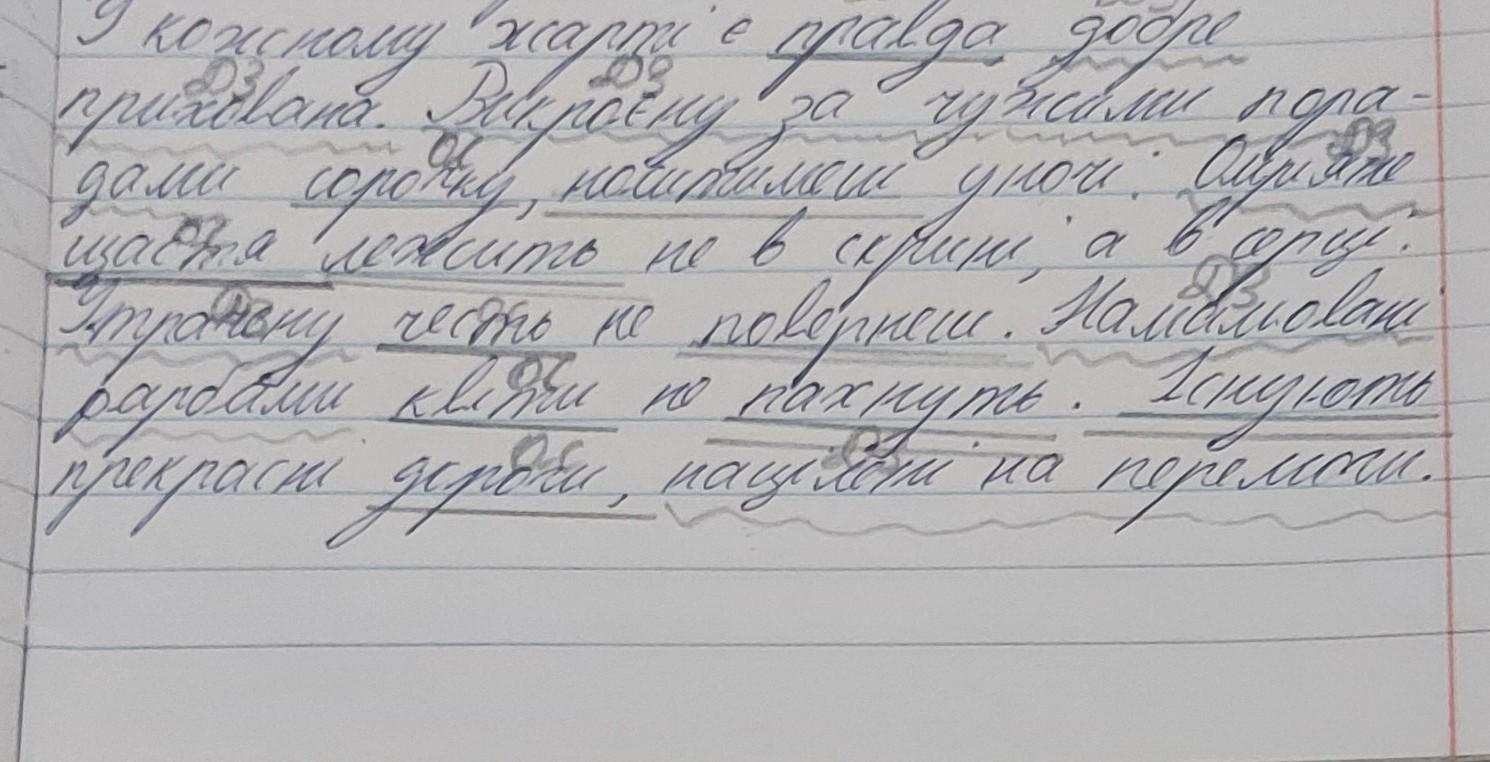 У кожному жарті є правда добре
прихована. Викроєну за чужими пора-
дами сорочку, носитимеш уночі. Омріяне
щастя лежить не в скрині, а в серці.
Утрачену честь не повернеш. Намальовані
фарбами квіти не пахнуть. Існують
прекрасні дороги, націлені на перемоги.